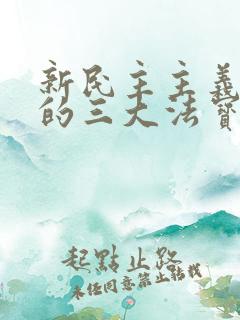 新民主主義
的三大法寶
起點止路
未经同意禁止转载